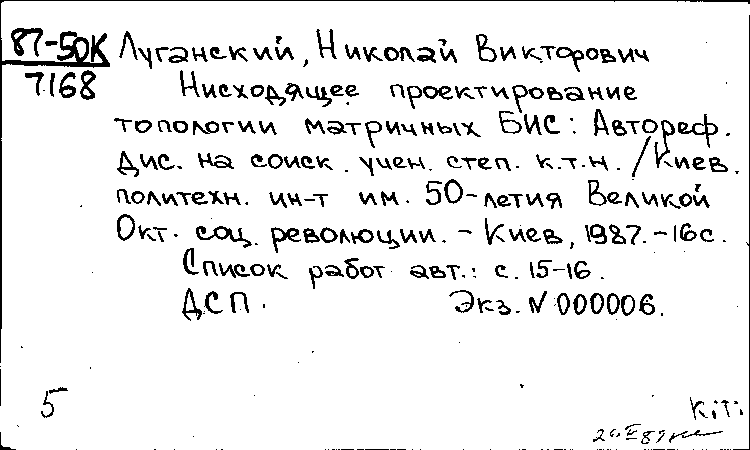 87-50К Луганский, Николай Викторович
7168 Нисходящее проектирование
топологии матричных БИС: Автореф.
дис. на соиск. учен. степ. к.т.н. /Киев.
политехн. ин-т им. 50-летия Великой
Окт. соц. революции. - Киев, 1987. - 16 с.
Список работ авт.: с. 15-16.
ДСП. Экз. N 000006.
5